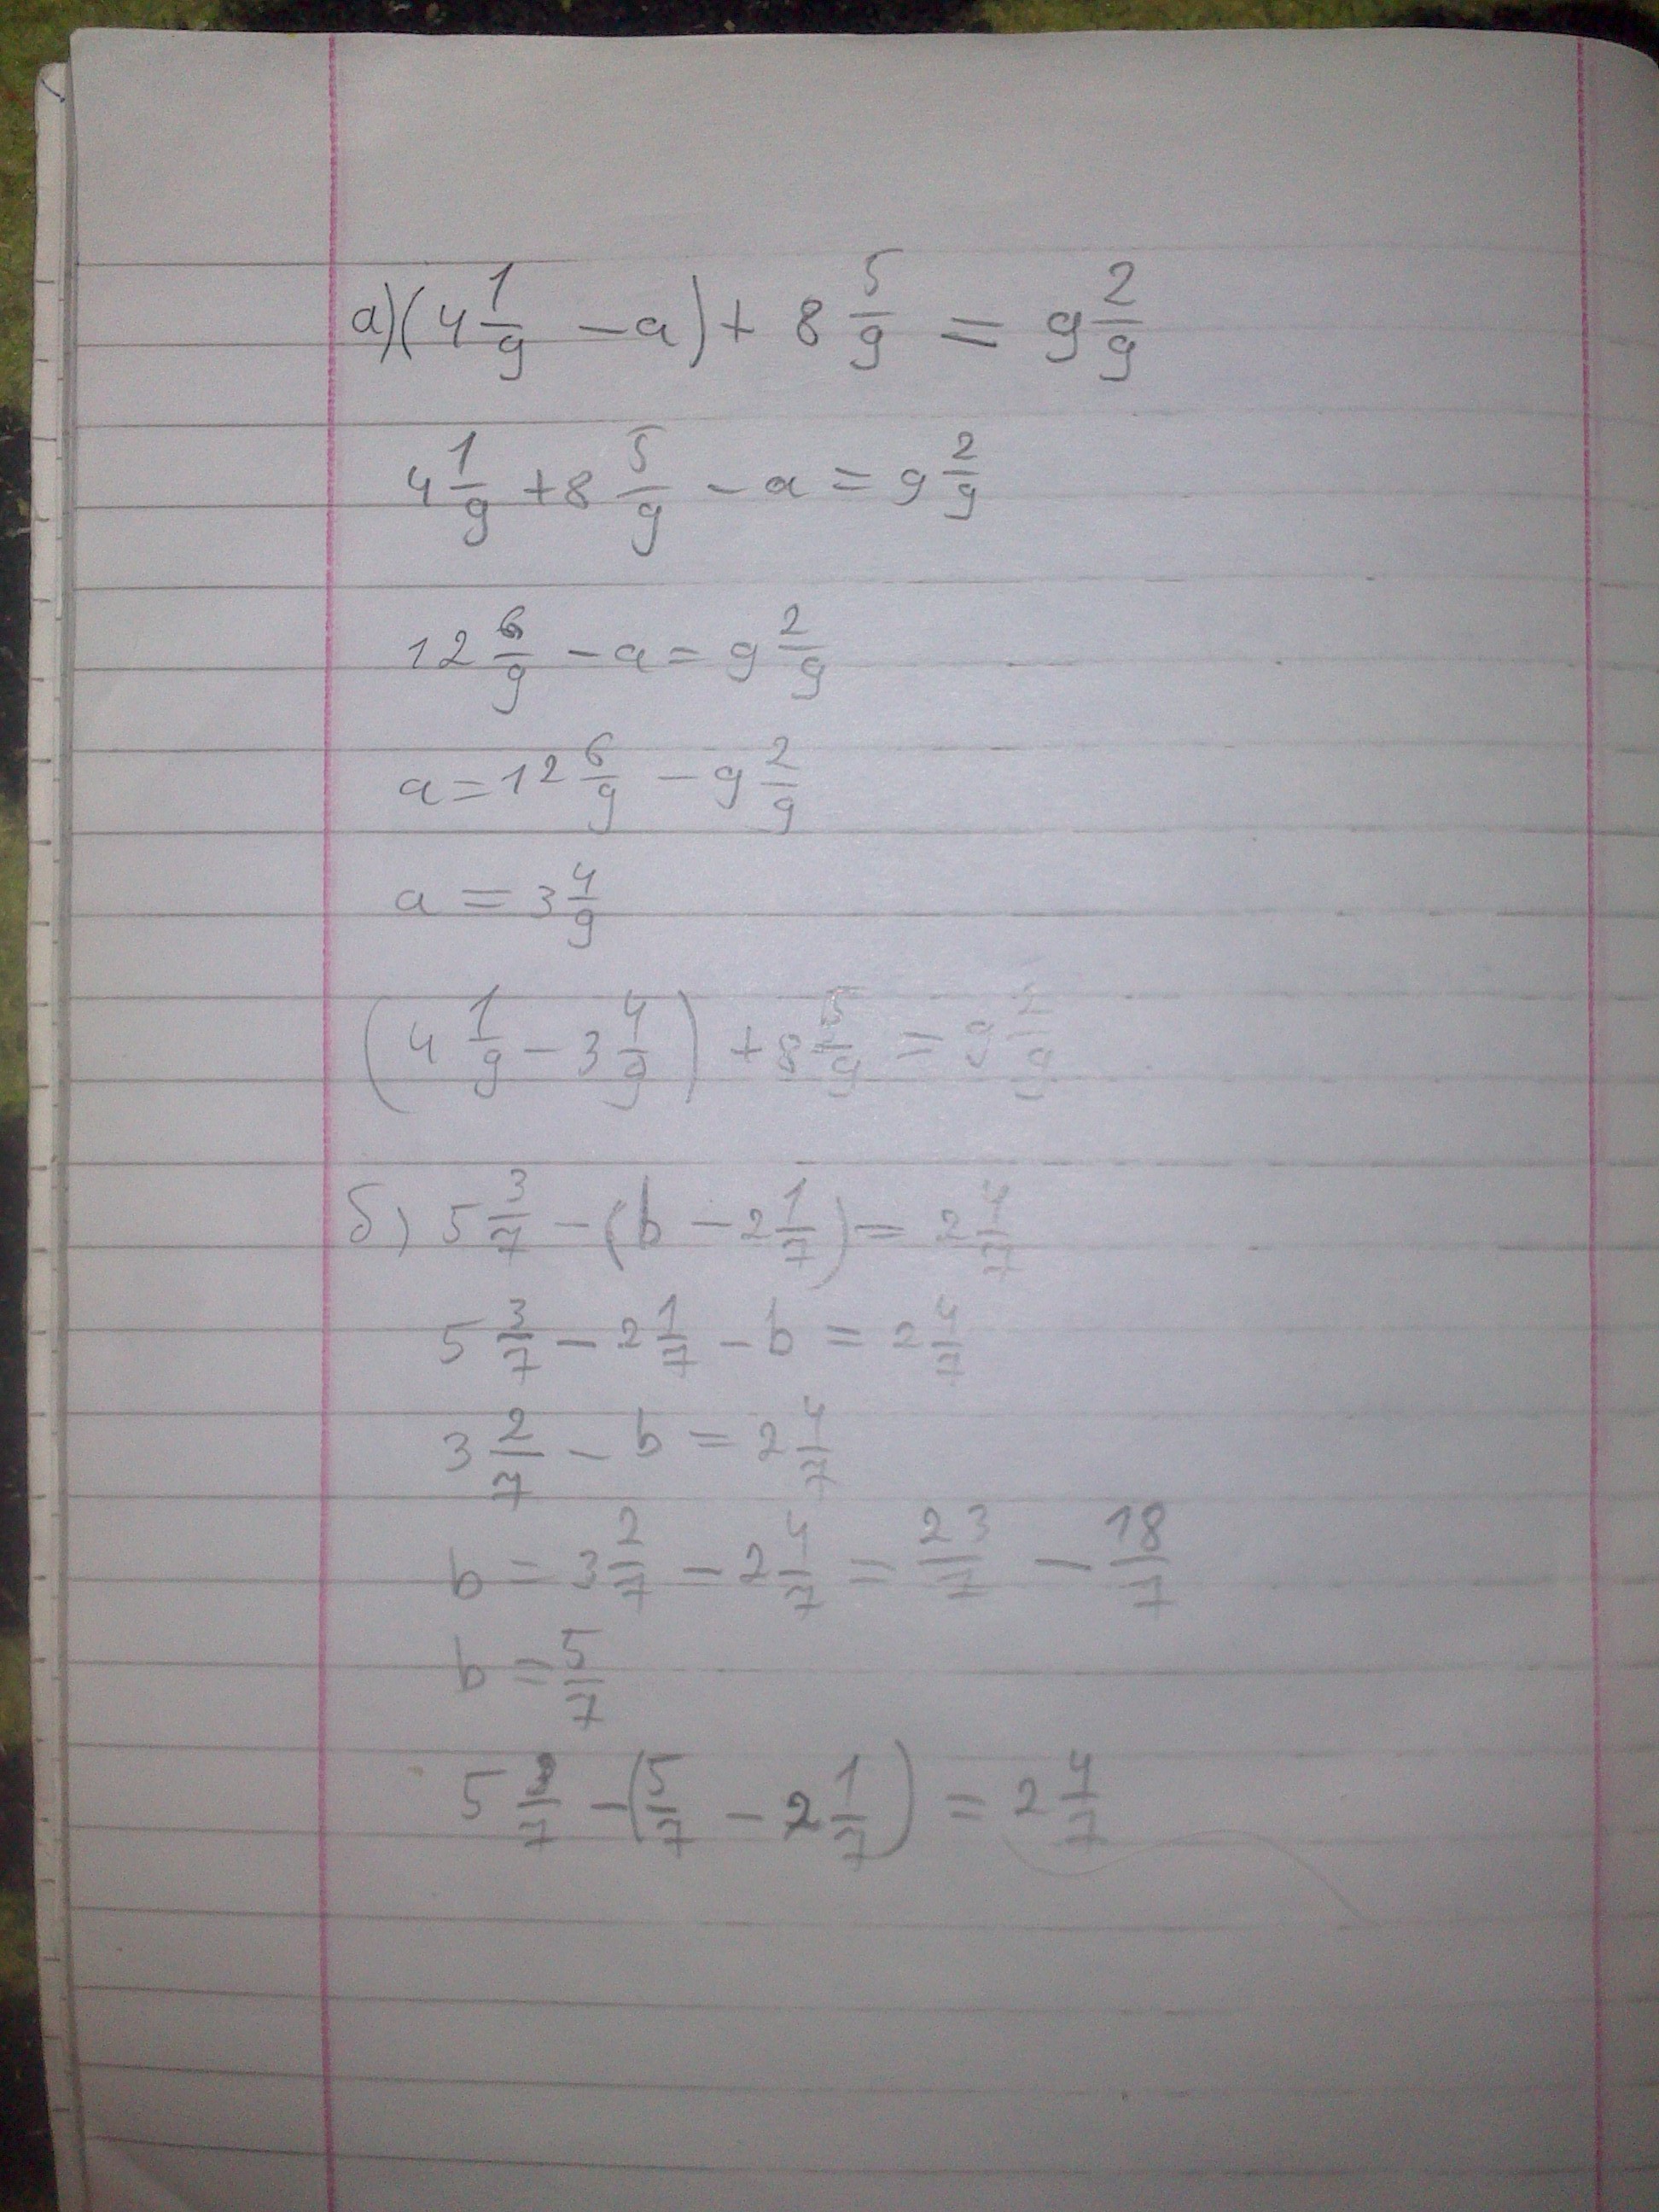 а) (4 1/9 - a) + 8 5/9 = 9 2/9
4 1/9 + 8 5/9 - a = 9 2/9
12 6/9 - a = 9 2/9
a = 12 6/9 - 9 2/9
a = 3 4/9
(4 1/9 - 3 4/9) + 8 5/9 = 9 2/9
б) 5 3/7 - (b - 2 1/7) = 2 4/7
5 3/7 - 2 1/7 - b = 2 4/7
3 2/7 - b = 2 4/7
b = 3 2/7 - 2 4/7 = 23/7 - 18/7
b = 5/7
5 3/7 - (5/7 - 2 1/7) = 2 4/7